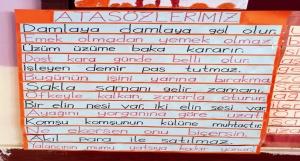 ATASÖZLERİMİZ
Damlaya damlaya göl olur.
Emek olmadan yemek olmaz.
Üzüm üzüme baka kararır.
Dost kara günde belli olur.
İşleyen demir pas tutmaz.
Bugünün işini yarına bırakma
Sakla samanı gelir zamanı.
Öfkeyle kalkan, zararla oturur.
Bir elin nesi var, iki elin sesi var
Ayağını yorganına göre uzat.
Komşu komşunun külüne muhtaçtır.
Ne ekersen onu biçersin.
Akıl para ile satılmaz.
Yalancının mumu yatsıya kadar yanar.